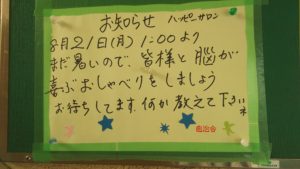 お知らせ ハッピーサロン
8月21日(月) 1:00より
まだ暑いので、皆様と脳が
喜ぶおしゃべりをしましょう
お待ちしてます。何か教えて下さいネ